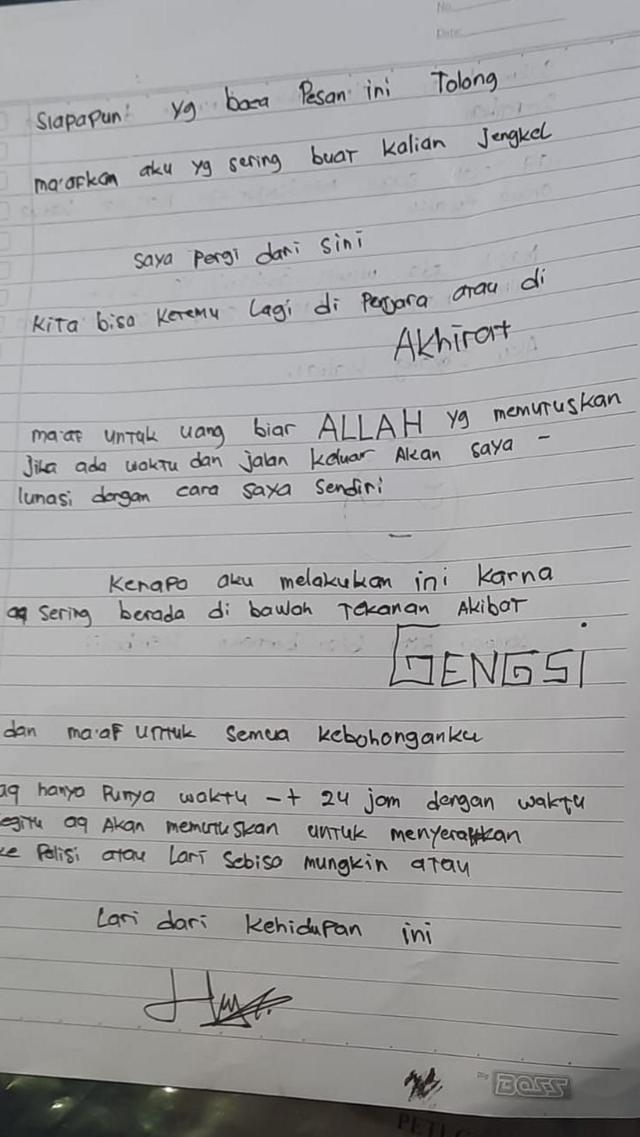 No.
Date:
Siapapun yg baca Pesan ini Tolong
ma'afkan aku yg sering buat kalian Jengkel
saya pergi dari sini
kita bisa ketemu Lagi di Penjara atau di
Akhirat
ma'af untuk uang biar ALLAH yg memutuskan
Jika ada waktu dan jalan keluar Akan saya -
lunasi dengan cara saya sendiri
Kenapa aku melakukan ini karna
aq sering berada di bawah Tekanan Akibat
GENGSI
dan ma'af untuk semua kebohonganku
aq hanya Punya waktu -+ 24 jam dengan waktu
egitu aq Akan memutuskan untuk menyerahkan
ke Polisi atau Lari sebisa mungkin atau
Lari dari kehidupan ini
BOSS